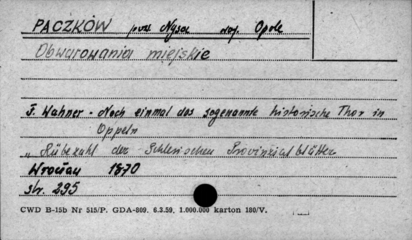 PACZKÓW pow. Nysa woj. Opole
Obwarowania miejskie
F. Wahner - Noch einmal das sogenannte historische Thor in
Oppeln
„Rübezahl der Schlesischen Provinzialblätter
Wrocław 1870
str. 295
CWD B-15b Nr 515/P. GDA-809. 6.2.59. 1.000.000 karton 180/V.